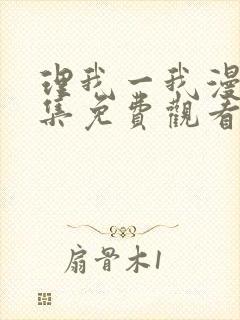 理我一我漫
集免費觀看
扇骨木1